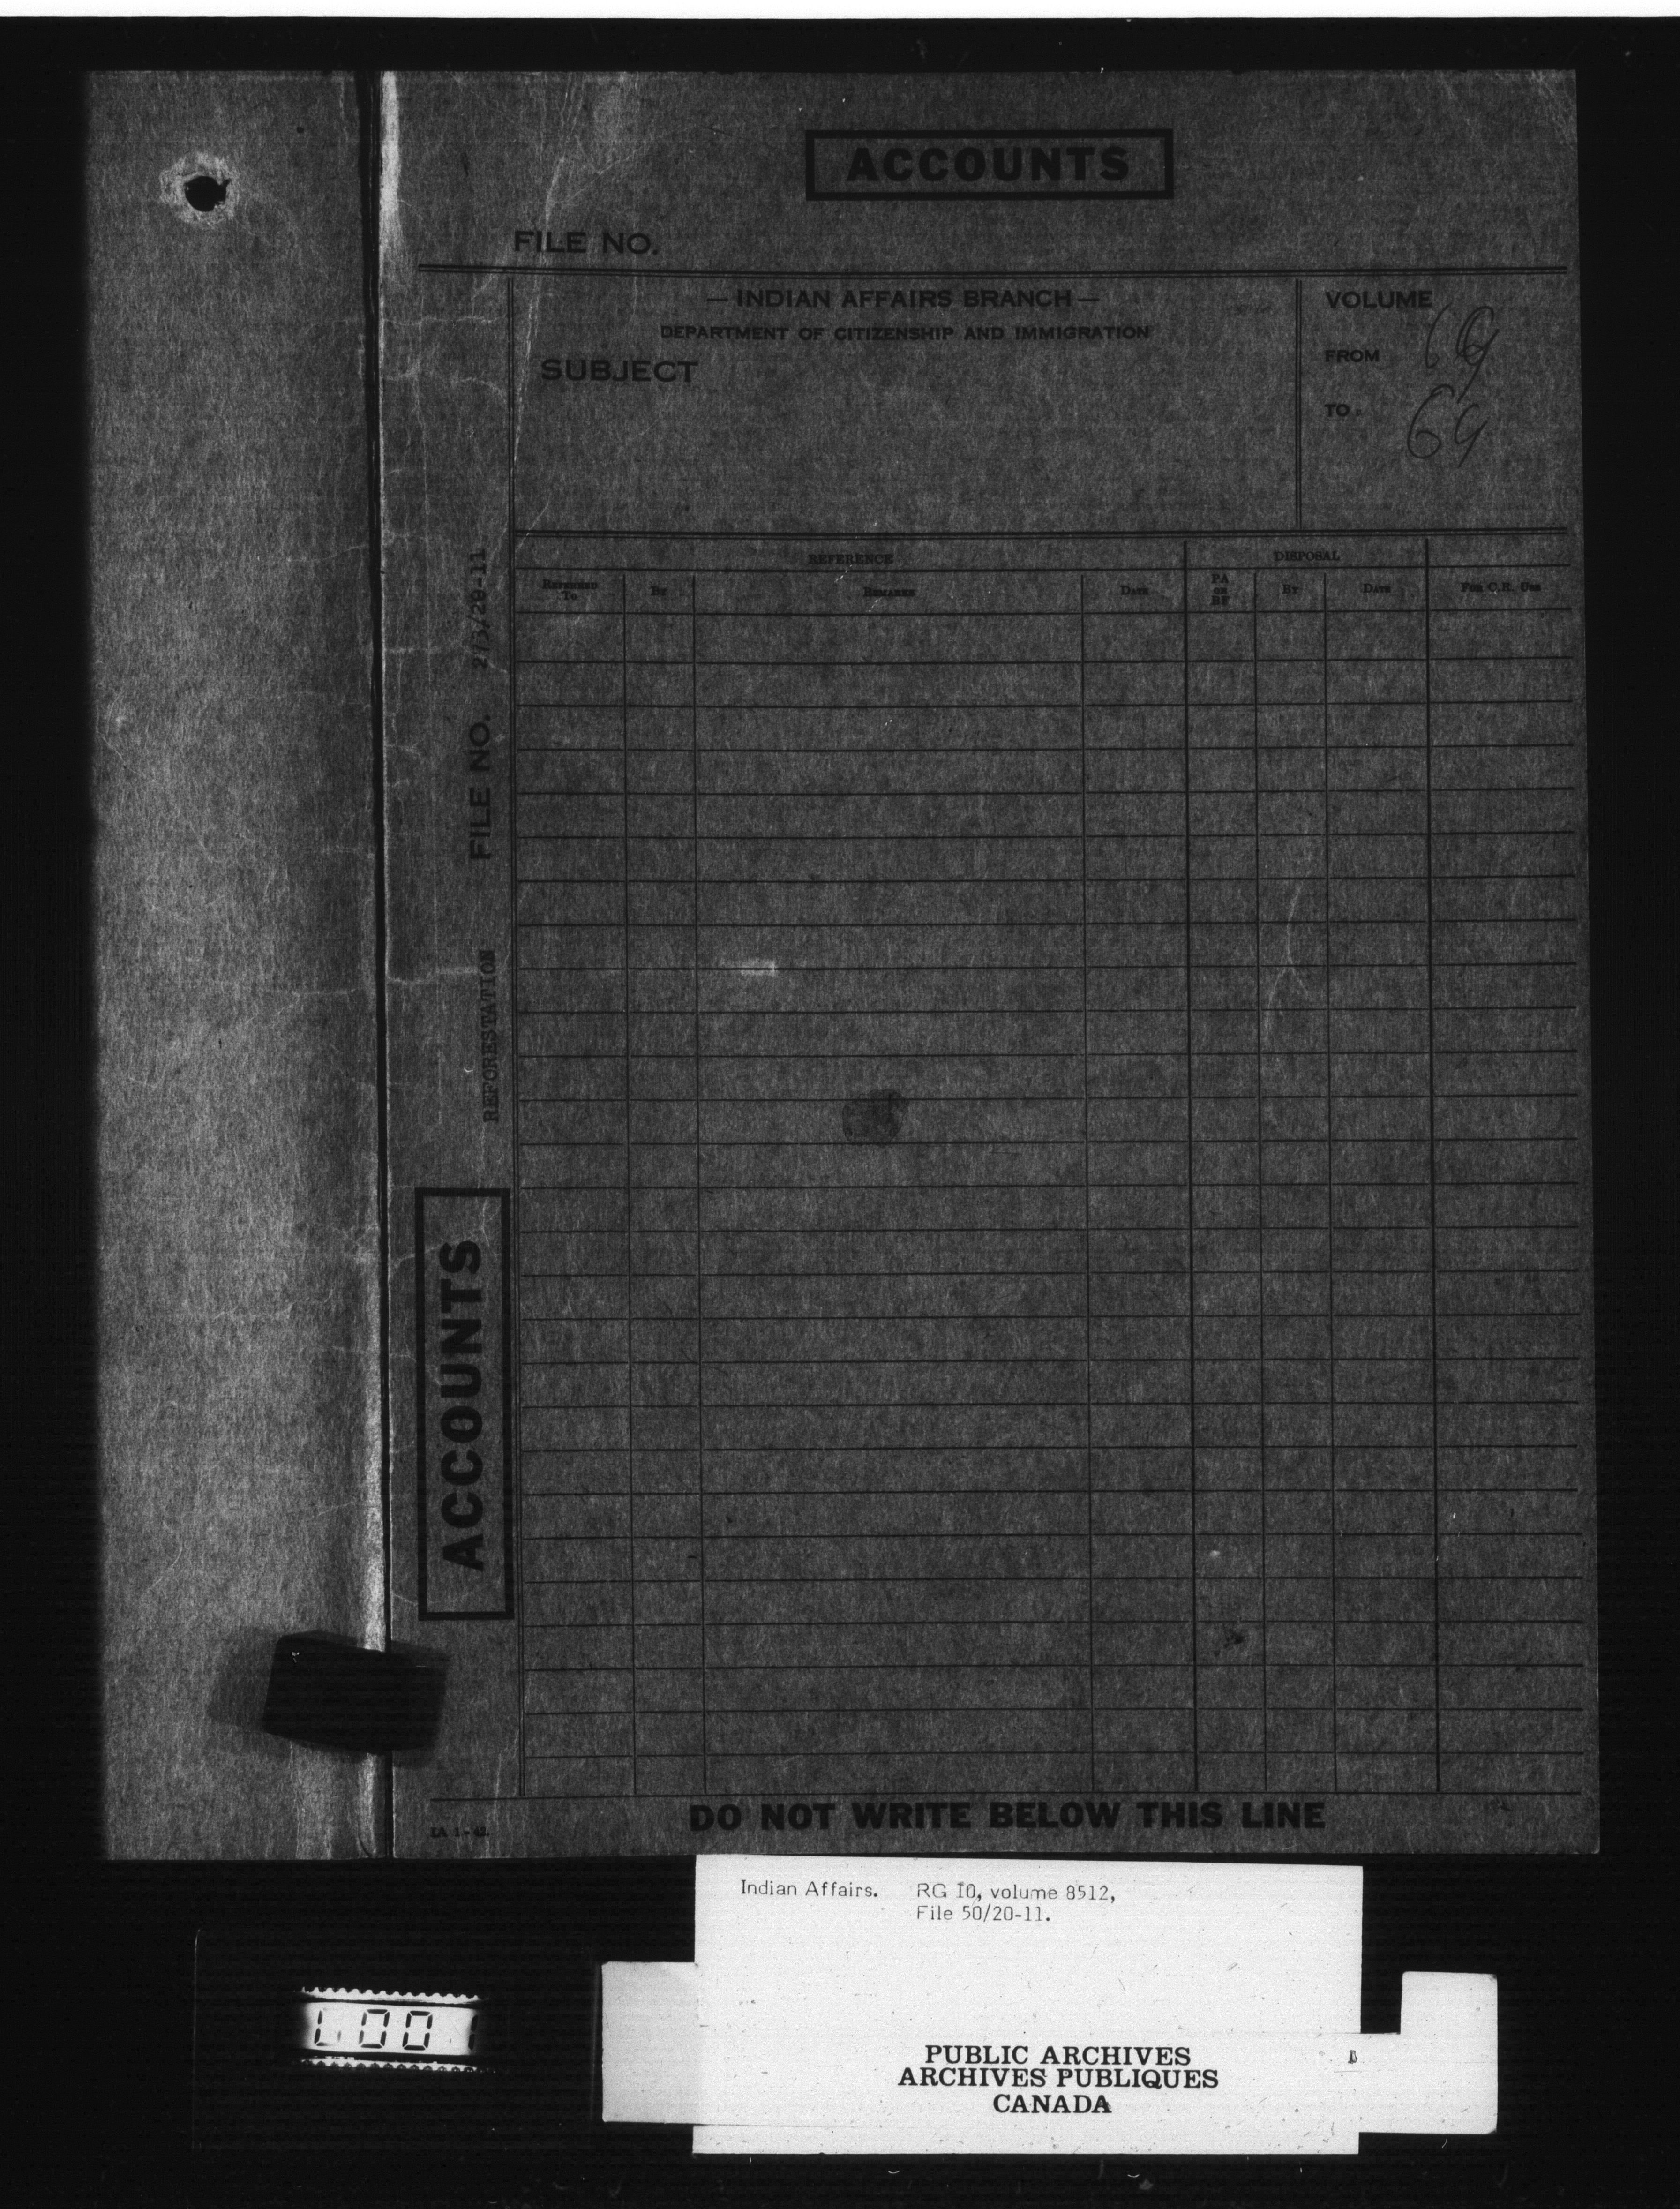 ACCOUNTS
FILE NO.
— INDIAN AFFAIRS BRANCH —
DEPARTMENT OF CITIZENSHIP AND IMMIGRATION
SUBJECT
VOLUME
FROM 69
TO 69
REFERENCE
DISPOSAL
REFERRED TO
BY
REMARKS
DATE
PA OR BF
BY
DATE
FOR C.R. USE
FILE NO. 2/3/20-11
REFORESTATION
ACCOUNTS
DO NOT WRITE BELOW THIS LINE
IA 1-42.
Indian Affairs. RG 10, volume 8512,
File 50/20-11.
PUBLIC ARCHIVES
ARCHIVES PUBLIQUES
CANADA